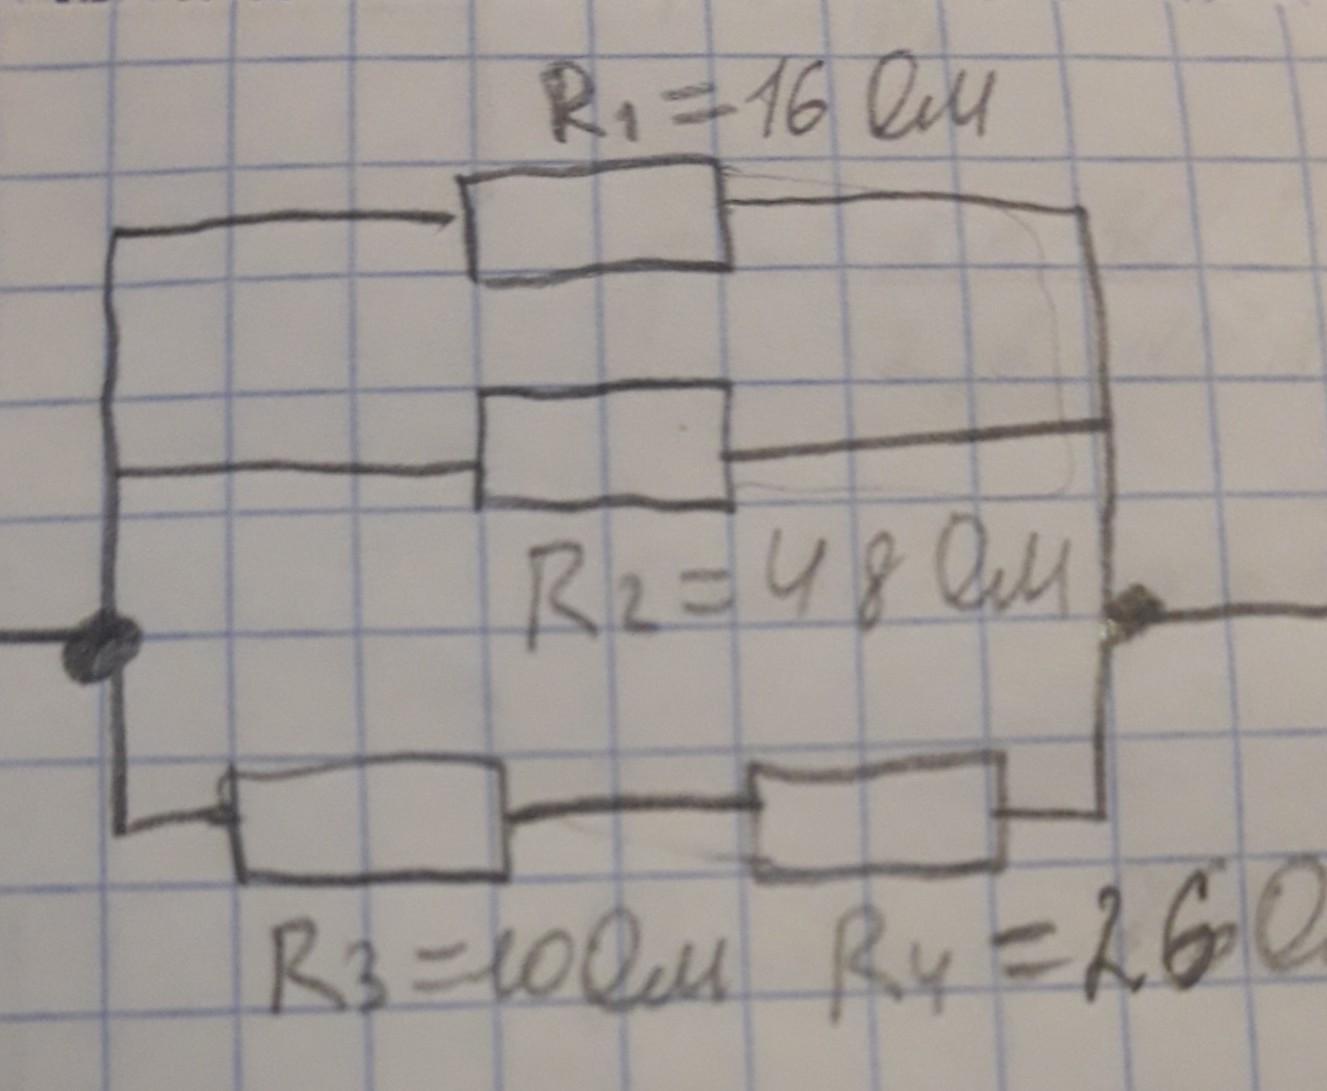 R1=16 Ом
R2=48 Ом
R3=10Ом R4=26 О